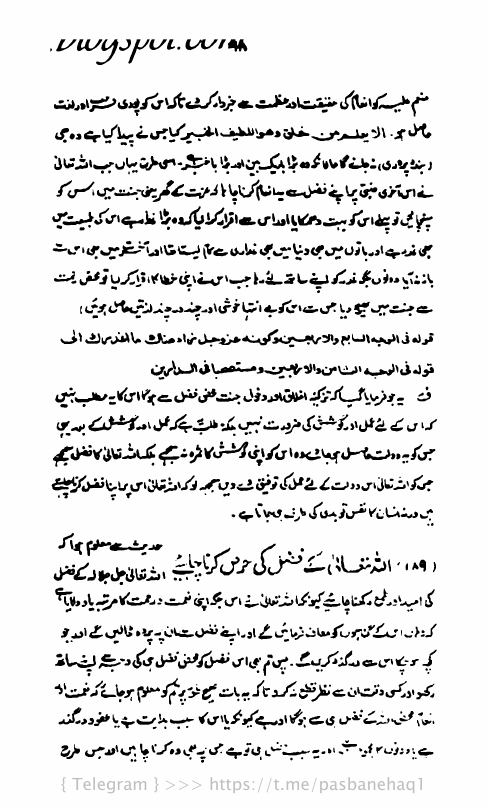 .blogspot.com
منعم علیہ کو انعام کی حقیقت اور عظمت سے خبردار کر دے تاکہ اس کو پوری مسرت اور لذت
حاصل ہو۔ الا یعلم من خلق وھو اللطیف الخبیر کیا جس نے پیدا کیا ہے وہ بھی
نہ جانے گا حالانکہ وہ بڑا باریک بین اور بڑا باخبر ہے۔ اسی طرح یہاں جب اللہ تعالیٰ
نے اس آخری جنتی پر اپنے فضل سے یہ انعام کرنا چاہا کہ عزت کے گھر یعنی جنت میں اس کو
پہنچائیں تو پہلے اس کو بہت دھمکایا اور اس سے اقرار کرا لیا کہ وہ بڑا غدار ہے اس کی طبیعت میں
بھی غدر ہے اور باتوں میں بھی دنیا میں بھی غداری سے کام لیتا تھا اور آخرت میں بھی اس سے
باز نہ آیا
سے جنت میں بھیج دیا جس سے اس کو بے انتہا خوشی اور چند در چند لذتیں حاصل ہوئیں
قولہ فی الوجہ السابع والاربعین وکونہ عزوجل ... ھناک ما الغدرک الی
قولہ فی الوجہ الثامن والاربعین ... فی الدارین
ف یہ جو فرمایا گیا کہ تزکیہ اخلاق اور دخول جنت محض فضل سے ہوگا اس کا یہ مطلب نہیں
کہ اس کے لئے عمل اور کوشش کی ضرورت نہیں بلکہ مطلب یہ ہے کہ عمل اور کوشش کے بعد بھی
جس کو یہ دولت حاصل ہو جائے وہ اس کو اپنی کوشش کا ثمرہ نہ سمجھے بلکہ اللہ تعالیٰ کا فضل سمجھے
جس کو اللہ تعالیٰ اس دولت کے لئے عمل کی توفیق دے دیں سمجھو کہ اللہ تعالیٰ اس پر اپنا فضل کرنا چاہتے
ہیں ورنہ انسان کا نفس تو بدی کی طرف ہی جاتا ہے۔
(۱۸۹) اللہ تعالیٰ کے فضل کی حرص کرنا چاہئے
حدیث سے معلوم ہوا کہ
اللہ تعالیٰ جل جلالہ کے فضل
کی امید اور طمع رکھنا چاہئے کیونکہ اللہ تعالیٰ نے اس جگہ اپنی نعمت و رحمت کا مرتبہ یاد دلایا ہے
کہ وہاں اس کے گناہوں کو معاف فرمائیں گے اور اپنے فضل سے ان پر پردہ ڈالیں گے اور جو
کچھ ہو چکا اس سے درگذر کریں گے۔ پس تم بھی اس فضل کو محض فضل ہی کی وجہ سے اپنے ساتھ
رکھو اور کسی وقت ان سے نظر قطع نہ کرو تاکہ یہ بات صحیح طور پر تم کو معلوم ہو جائے کہ نعمت اور
انعام محض اللہ کے فضل ہی سے ہوگا اور ہے کیونکہ یا اس کا سبب ہدایت ہے یا عفو و درگذر
ہے یا دونوں اور یہ سب فضل ہی تو ہے جس پر بھی وہ کرنا چاہیں اور جس طرح
{ Telegram } >>> https://t.me/pasbanehaq1